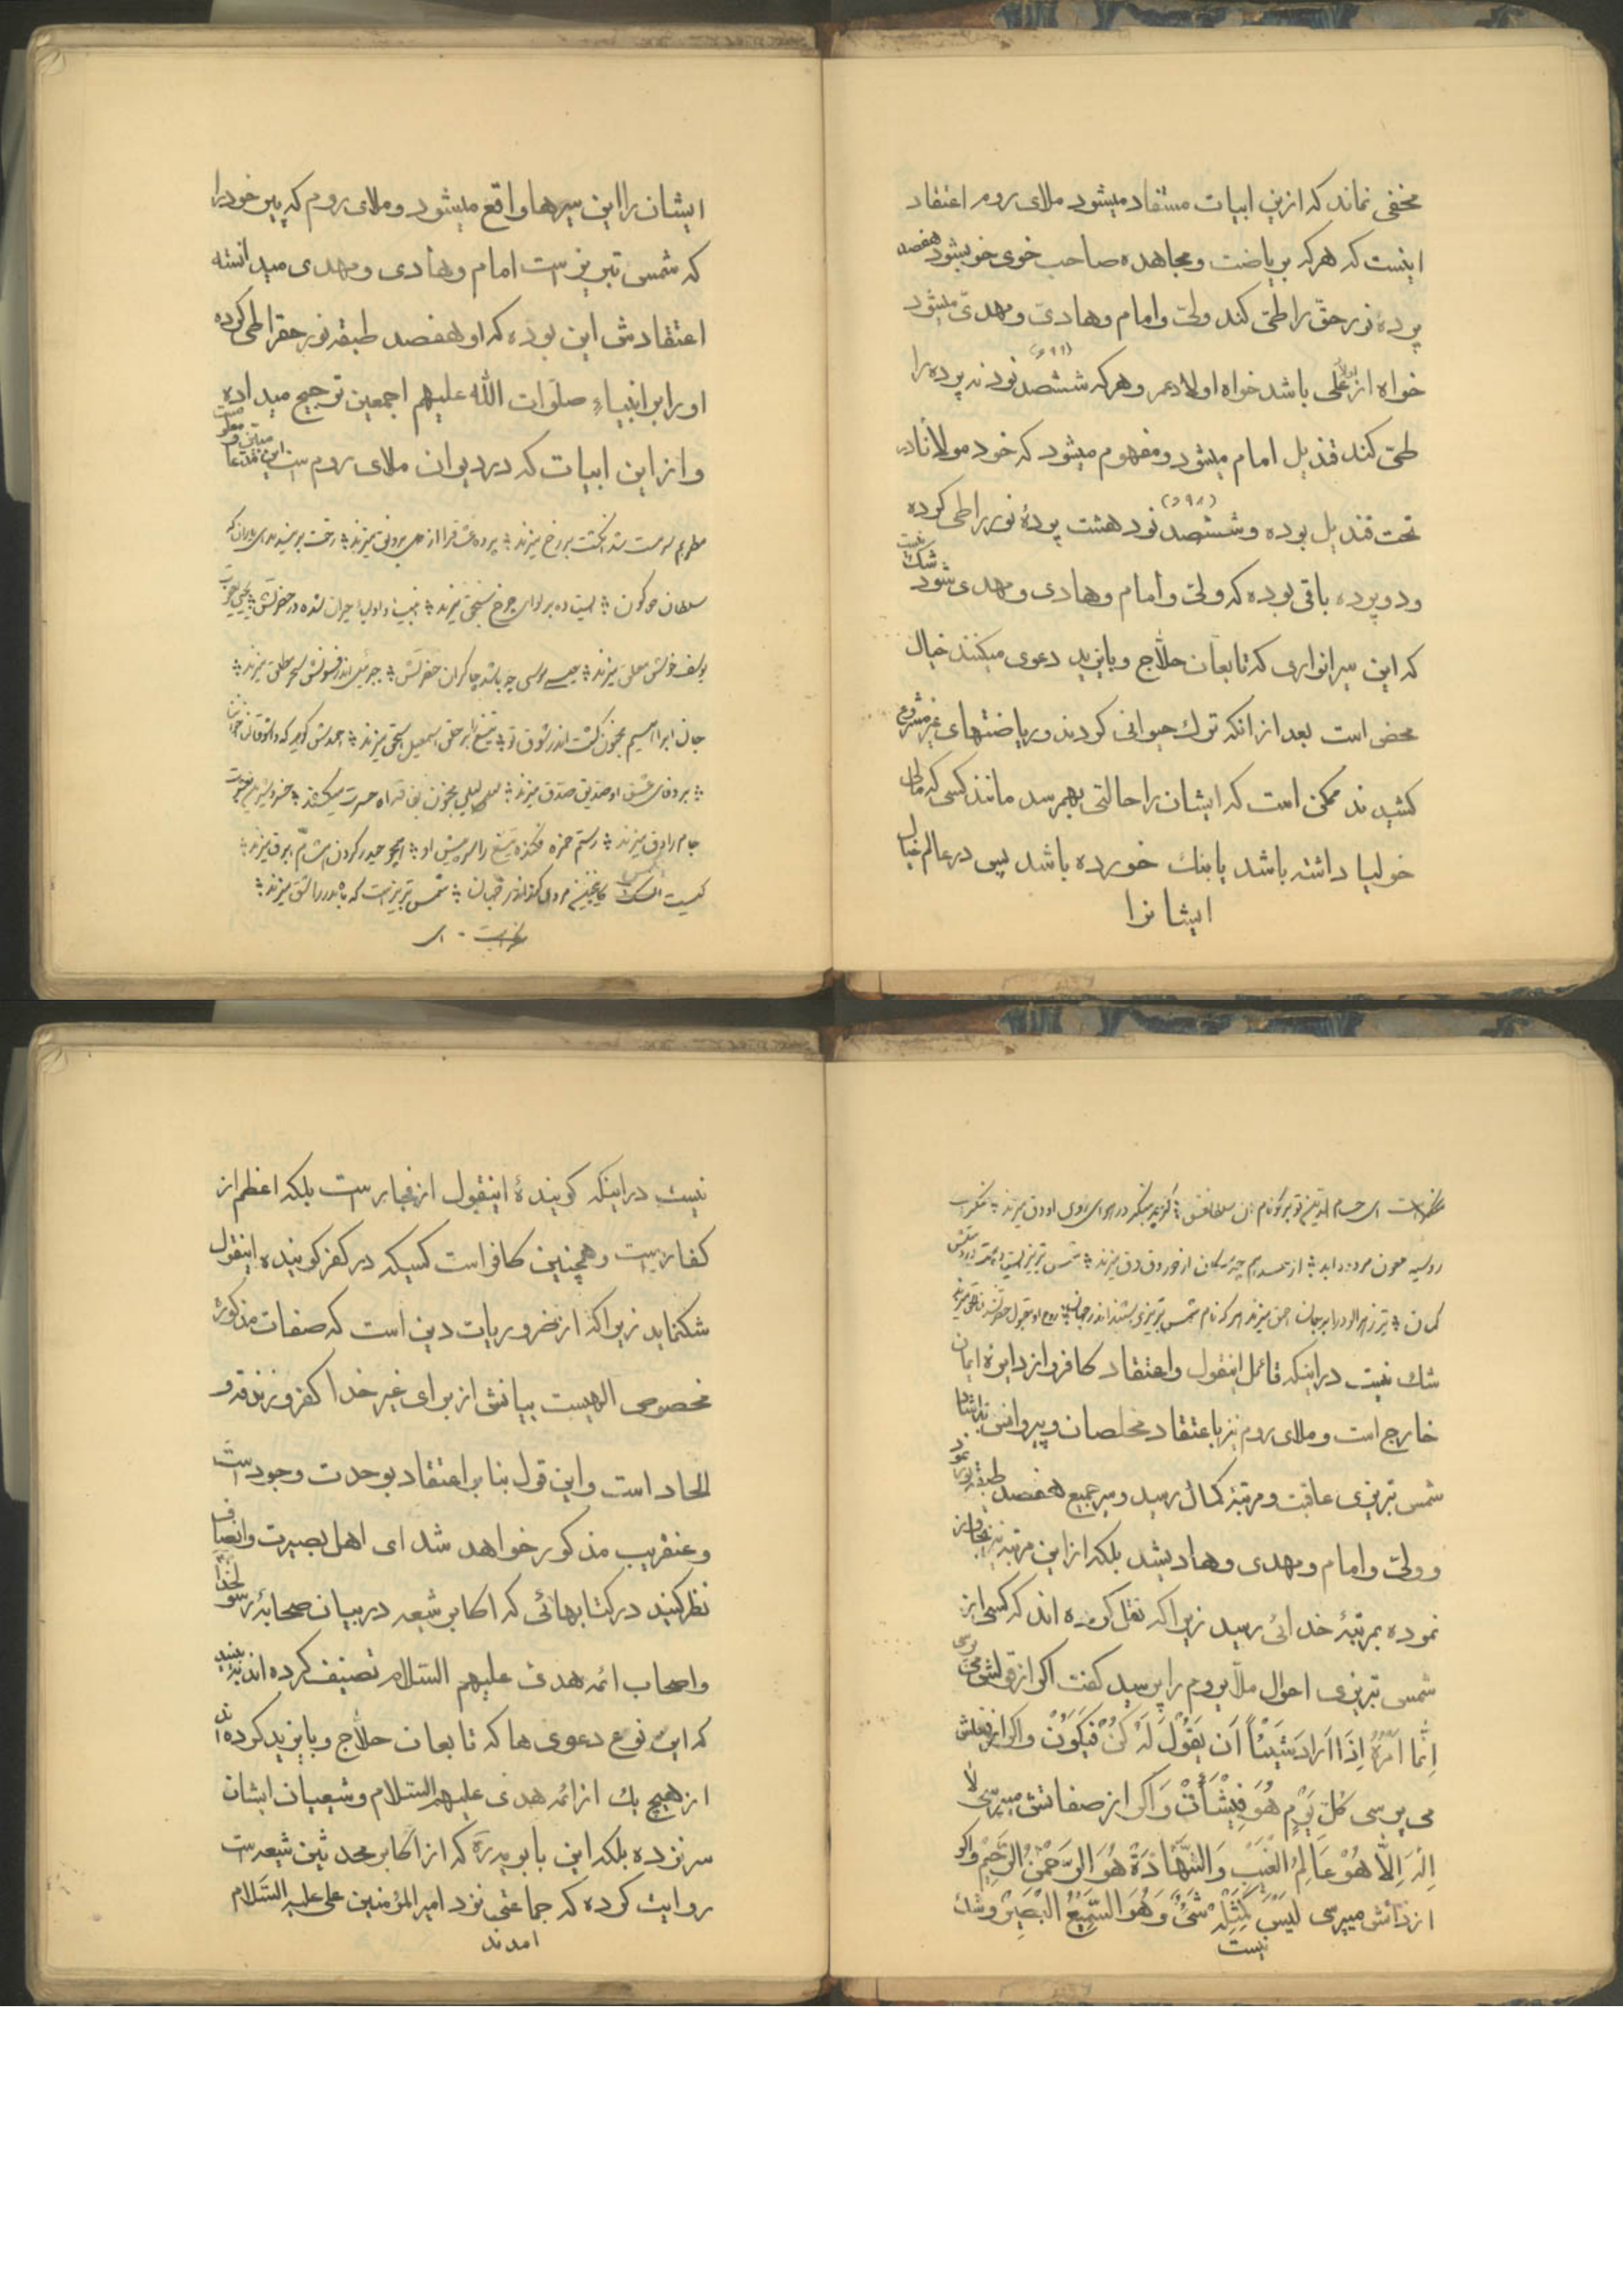 مخفی نماند که ازین ابیات مستفاد میشود ملای روم اعتقاد
اینست که هرکه بریاضت و مجاهده صاحب خوی خوبشود هفصد
پرده نور حق را طی کند ولی و امام و هادی و مهدی میشود
خواه از اولاد علی باشد خواه اولاد عمر و هرکه ششصد نود نه پرده را
طی کند قندیل امام میشود و مفهوم میشود که خود مولانا در
تحت قندیل بوده و ششصد نود هشت پردهٔ نور را طی کرده
و دو پرده باقی بوده که ولی و امام و هادی و مهدی شود شک نیست
که این سیر انواری که تابعان حلاج و بایزید دعوی میکنند خیال
محض است بعد از انکه ترک حیوانی کردند و ریاضتهای غیر مشروع
کشیدند ممکن است که ایشان را حالتی بهمرسد مانند کسی که مالی
خولیا داشته باشد یا بنک خورده باشد پس در عالم خیال
ایشانرا
ایشان را این سیرها واقع میشود و ملای روم که پیر خود را
که شمس تبریزست امام و هادی و مهدی میدانسته
اعتقادش این بوده که او هفصد طبقه نور حقرا طی کرده
او را بر انبیاء صلوات الله علیهم اجمعین ترجیح میداده
و از این ابیات که در دیوان ملای روم است این مدعا
مطربم سرمست شد انکشت بر رخ میزند پرده عشاق را از دل برونی میزند رخت بر بندید ای یاران که
سلطان دو کون ایستاده بر لوای چرخ سنجق میزند انبیا و اولیا حیران شده در حضرتش یحیی و
یوسف خوش معلق میزند عیسی و موسی چه باشد چاکران حضرتش جبرئیل اندر فسونش سحر مطلق میزند
جان ابراهیم مجنون کشت اندر شوق تو تیغ را بر حلق اسمعیل و اسحق میزند احمدش کوید که واشوقا
بر وفای عشق او صدیق صدق میزند لیلی مجنون بفاقه اه حسرت میکشند خسرو و شیرین
جام راوق میزند رستم و حمزه فکنده تیغ را سر پیش او همچو حیدر کردن هشام ابرق میزند
کیست انکس کاینچنین مردی کند اندر جهان شمس تبریزست که ماه بدر را شق میزند
نظر است ای حسام الدین تو بر کو نام ان سلطان عشق کرچه منکر در هوای روی او دق میزند منکر است
روسیه ملعون مردود ابد از حسد همچون سکان از دور وق وق میزند شمس تبریز ایستاده مست و در دستش
کمان تیر زهر الود را بر جان احمق میزند هر که نام شمس تبریزی شنید اندر جهان روح او مقبول حضرت شد اناالحق میزند
شک نیست در اینکه قائل اینقول و اعتقاد کافر و از دایره ایمان
خارج است و ملای روم نیز باعتقاد مخلصان و پیروانش
شمس تبریزی عاقبت و مرتبهٔ کمال رسید و سیر جمیع هفصد طبقه نور نمود
و ولی و امام و مهدی و هادیشد بلکه از این مرتبه نیز تجاوز
نموده بمرتبهٔ خدائی رسید زیرا که نقل کرده اند که کسی از
شمس تبریزی احوال ملای روم را پرسید کفت اکر از قولش می پرسی
إِنَّمَا أَمْرُهُ إِذَا أَرَادَ شَيْئاً أَن يَقُولَ لَهُ كُنْ فَيَكُونُ و اکر از فعلش
می پرسی كُلَّ يَوْمٍ هُوَ فِي شَأْنٍ و اکر از صفاتش میپرسی لا
إِلَهَ إِلَّا هُوَ عَالِمُ الْغَيْبِ وَالشَّهَادَةِ هُوَ الرَّحْمَنُ الرَّحِيمُ و اکر
از ذاتش میپرسی لَيْسَ كَمِثْلِهِ شَيْءٌ وَهُوَ السَّمِيعُ الْبَصِيرُ و شک
نیست
نیست در اینکه کویندهٔ اینقول از فجارست بلکه اعظم از
کفارست و همچنین کافر است کسیکه در کفر کوینده اینقول
شکنماید زیرا که از ضروریات دین است که صفات مذکوره
مخصوص الهیست بیانش از برای غیر خدا کفر و زندقه و
الحاد است و این قول بنا بر اعتقاد بوحدت وجود است
و عنقریب مذکور خواهد شد ای اهل بصیرت و انصاف
نظر کنید در کتابهائی که اکابر شیعه در بیان صحابهٔ رسولخدا
و اصحاب ائمه هدی علیهم السلام تصنیف کرده اند به بینید
که این نوع دعوی ها که تابعان حلاج و بایزید کرده اند
از هیچ یک از ائمه هدی علیهم السلام و شیعیان ایشان
سر نزده بلکه ابن بابویه ره که از اکابر محدثین شیعه است
روایت کرده که جماعتی نزد امیرالمؤمنین علی علیه السلام
امدند